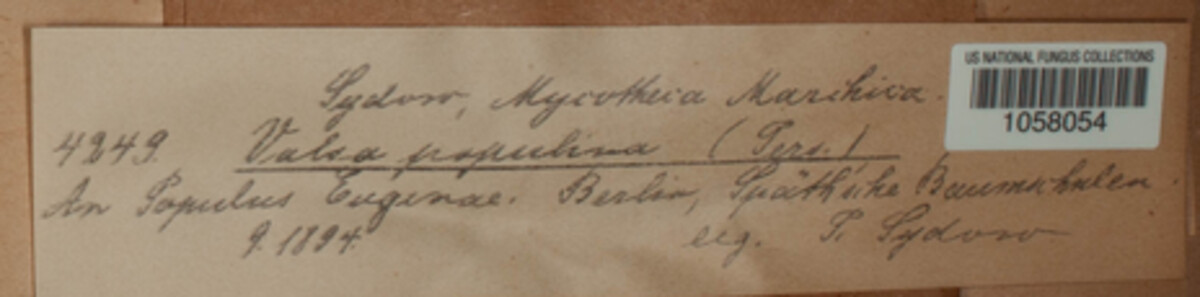 Sydow, Mycotheca Marchica.
4249. Valsa populina (Pers.)
An Populus Eugenae. Berlin, Späth'sche Baumschulen.
9. 1894. leg. P. Sydow
US NATIONAL FUNGUS COLLECTIONS
1058054